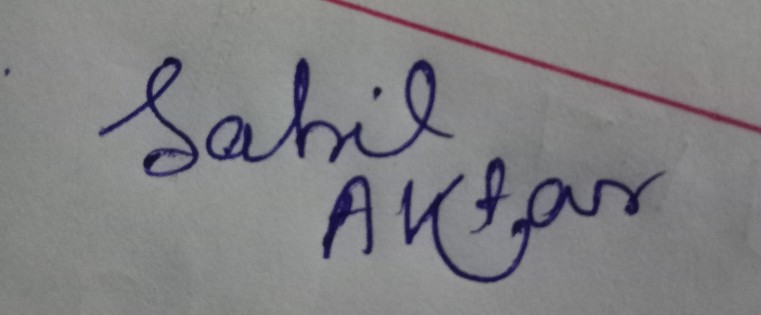 Sahil
Aktar